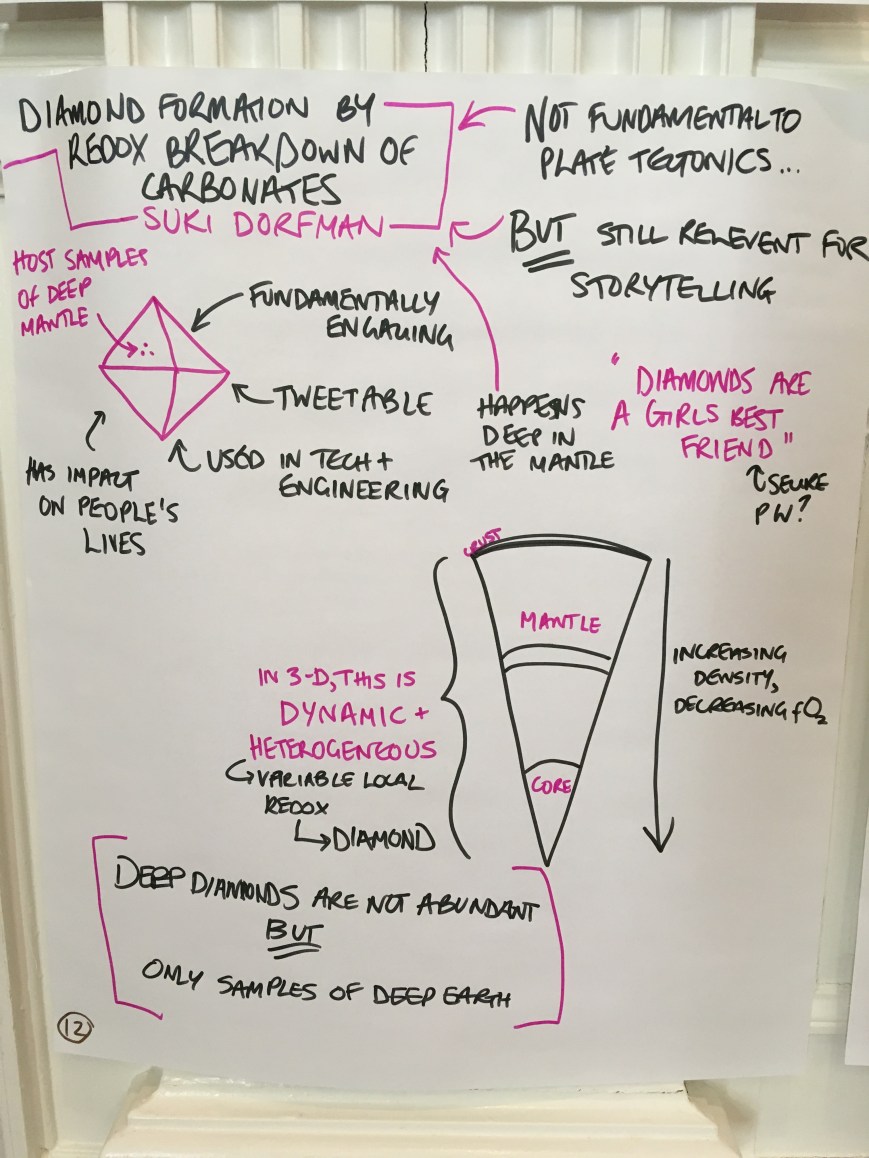 DIAMOND FORMATION BY
REDOX BREAKDOWN OF
CARBONATES
SUKI DORFMAN
NOT FUNDAMENTAL TO
PLATE TECTONICS...
BUT STILL RELEVENT FOR
STORYTELLING
HOST SAMPLES
OF DEEP
MANTLE
FUNDAMENTALLY
ENGAGING
TWEETABLE
USED IN TECH +
ENGINEERING
HAS IMPACT
ON PEOPLE'S
LIVES
HAPPENS
DEEP IN
THE MANTLE
"DIAMONDS ARE
A GIRLS BEST
FRIEND"
SECURE
PW?
CRUST
MANTLE
CORE
INCREASING
DENSITY,
DECREASING fO2
IN 3-D, THIS IS
DYNAMIC +
HETEROGENEOUS
VARIABLE LOCAL
REDOX
DIAMOND
DEEP DIAMONDS ARE NOT ABUNDANT
BUT
ONLY SAMPLES OF DEEP EARTH
12